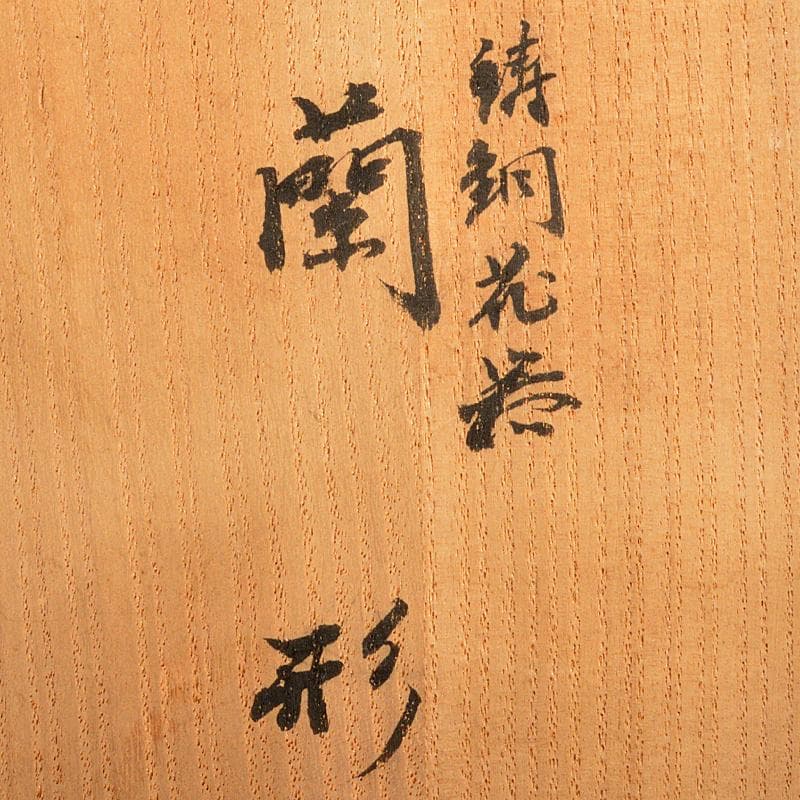 鋳銅花器
蘭形